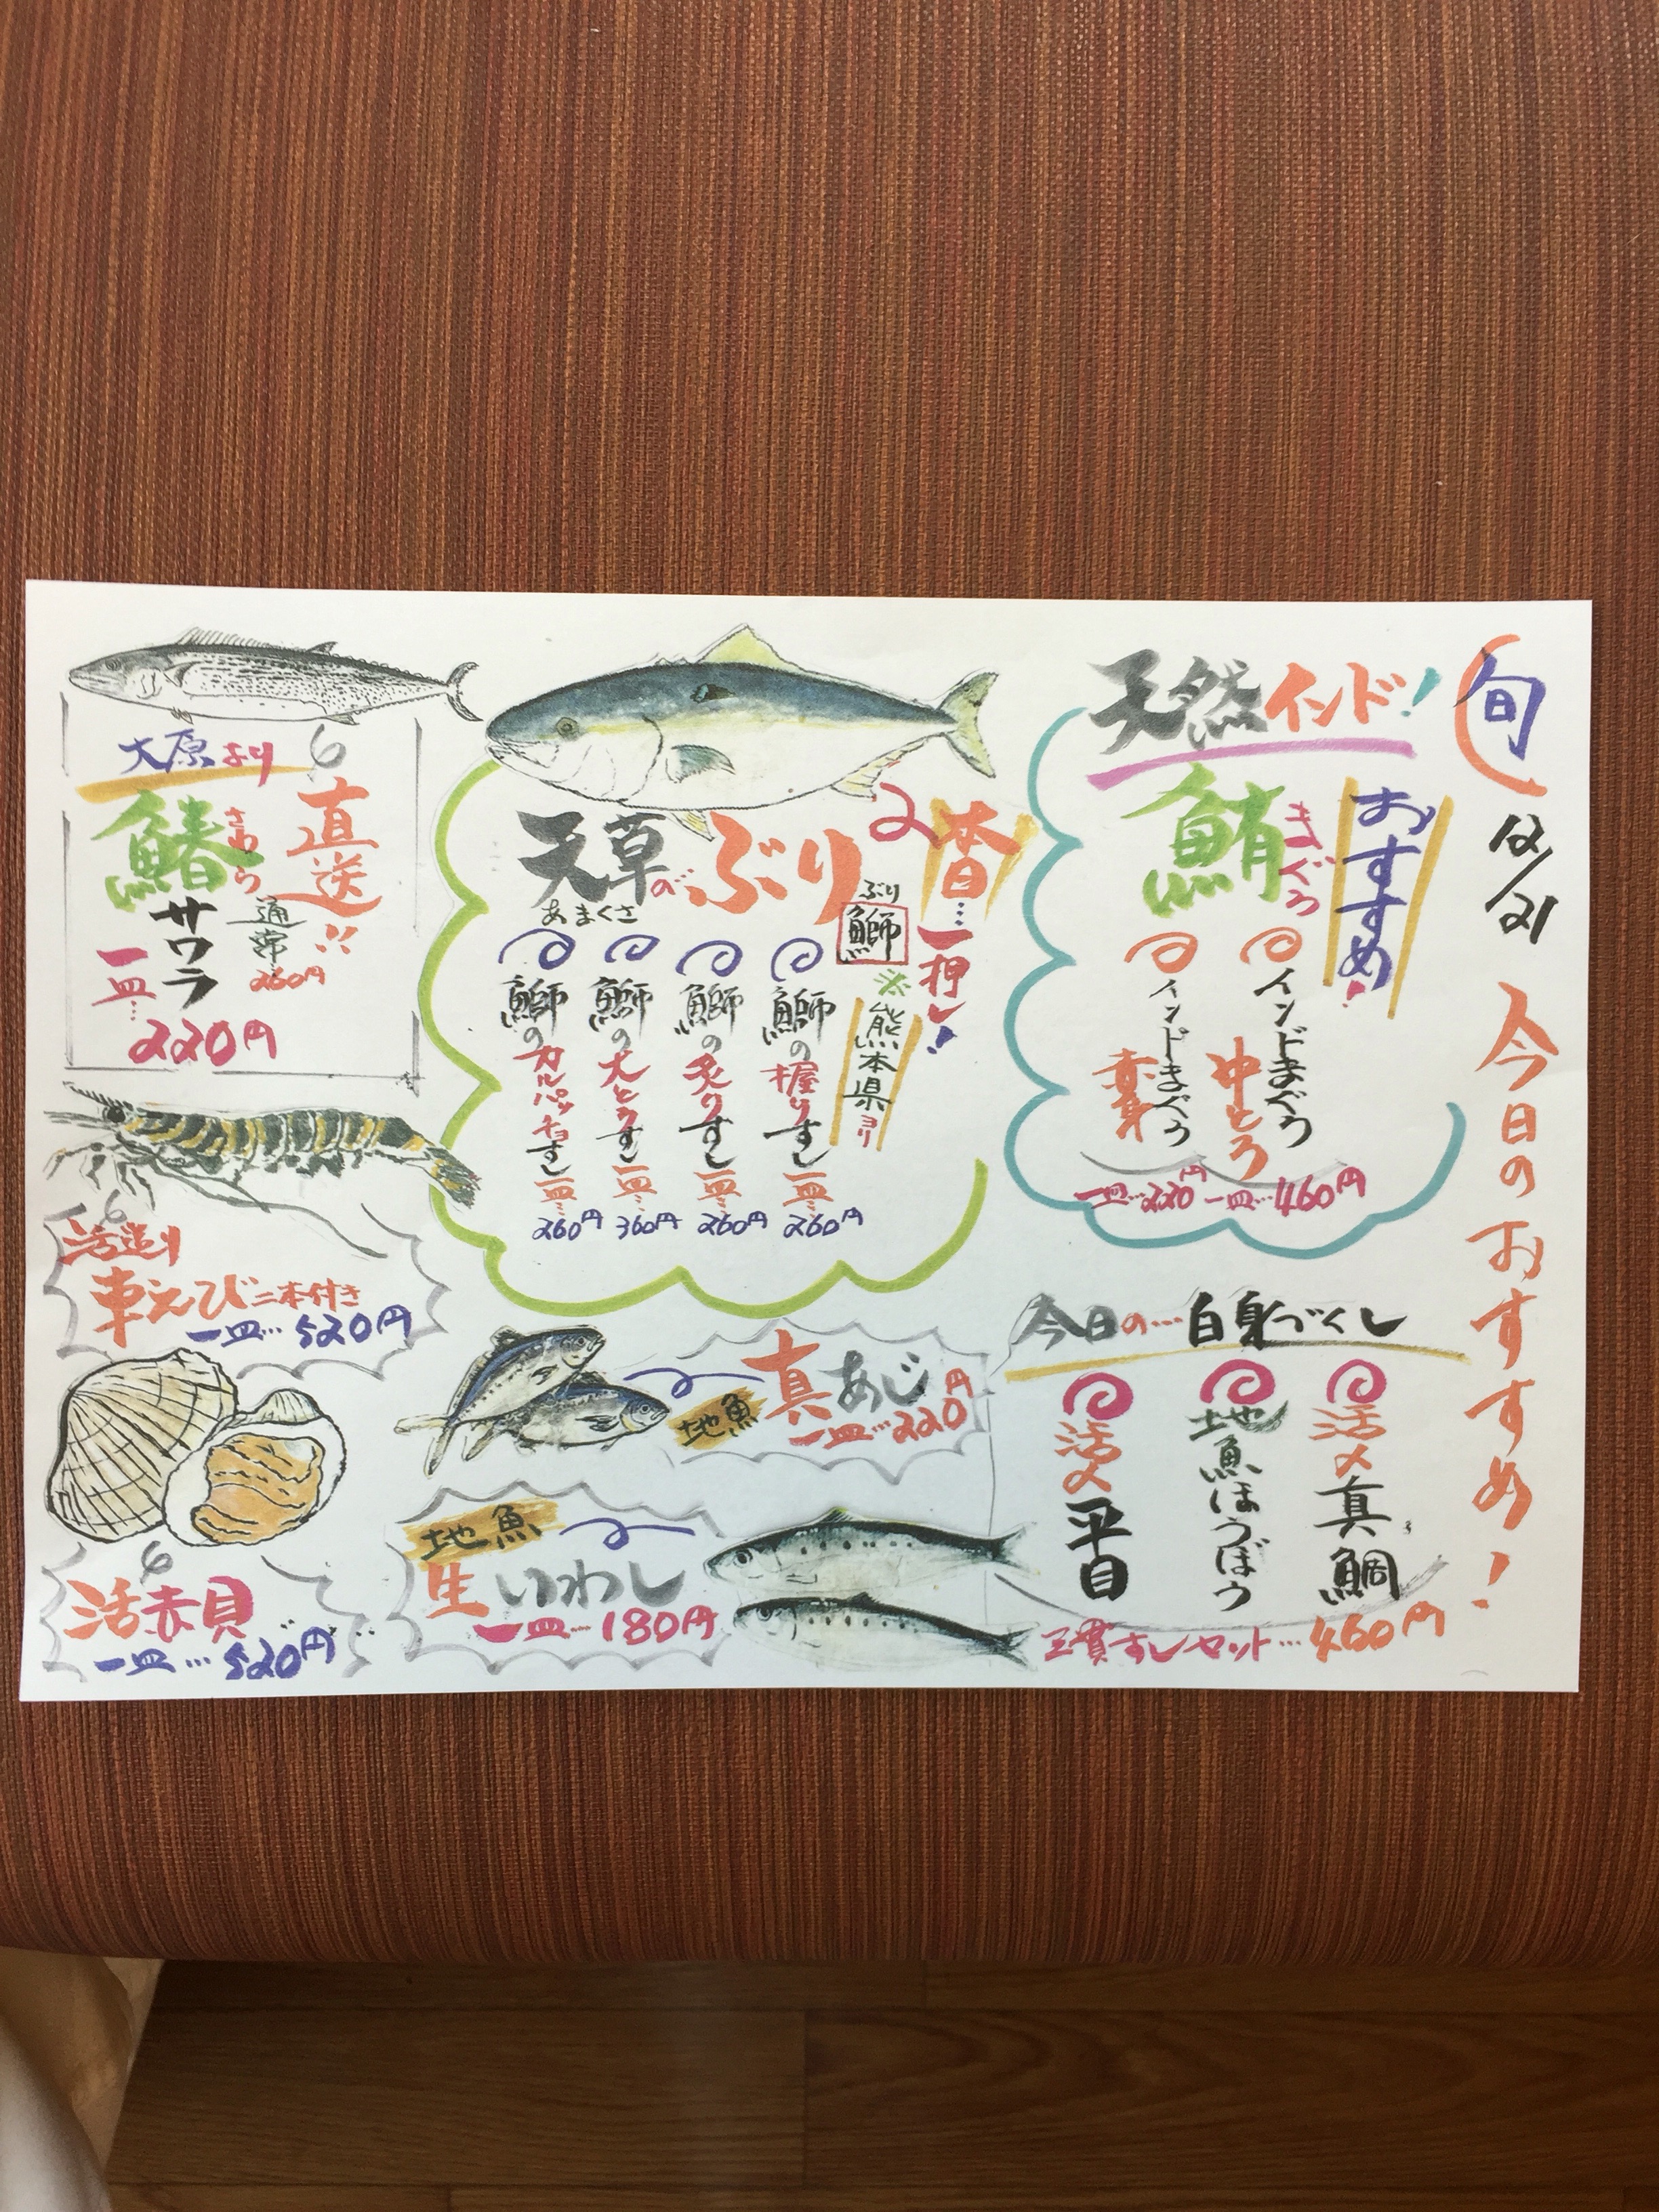 旬
12/21
今日のおすすめ!
天然インド!
鮪
まぐろ
おすすめ!
インドまぐろ
中とろ
一皿…460円
インドまぐろ
赤身
一皿…220円
今日の…白身づくし
活〆真鯛
地魚ほうぼう
活〆平目
三貫すしセット…460円
一押し!
天草のぶり
あまくさ
ぶり
鰤
※熊本県ヨリ
鰤の握りすし
一皿…260円
鰤の炙りすし
一皿…260円
鰤の大とろすし
一皿…360円
鰤のカルパッチョすし
一皿…260円
地魚
真あじ
一皿…220円
地魚
生いわし
一皿…180円
大原より
直送!!
鰆
さわら
サワラ
通常
260円
一皿…
220円
活造り
車えび二本付き
一皿…520円
活赤貝
一皿…520円